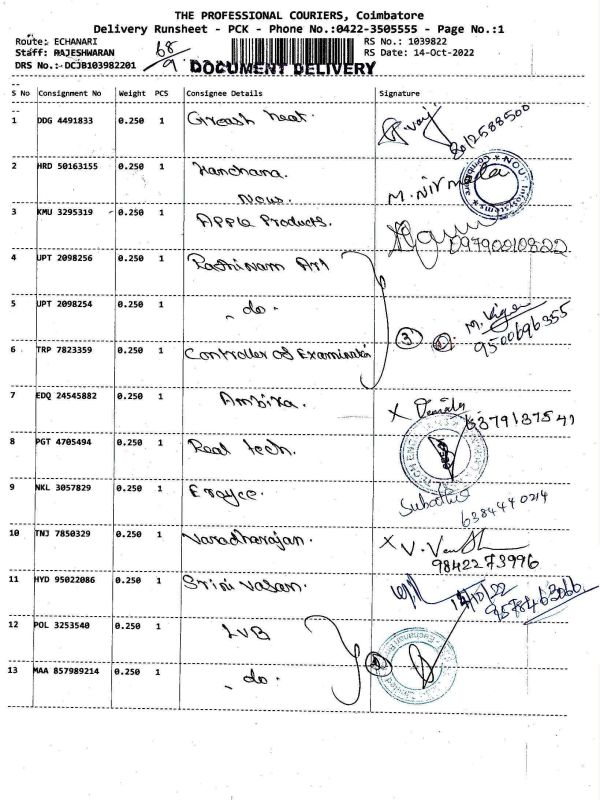 THE PROFESSIONAL COURIERS, Coimbatore
Delivery Runsheet - PCK - Phone No.:0422-3505555 - Page No.:1
Route: ECHANARI RS No.: 1039822
Staff: RAJESHWARAN 68/9 RS Date: 14-Oct-2022
DRS No.:-DCJB103982201 DOCUMENT DELIVERY
S No Consignment No Weight PCS Consignee Details Signature
1 DDG 4491833 0.250 1 Greash heat.
2 HRD 50163155 0.250 1 Kanchana. M. Nirmala
Nous.
3 KMU 3295319 0.250 1 Apple Products. 09790010822
4 UPT 2098256 0.250 1 Art
5 UPT 2098254 0.250 1 - do - M.
3 9500696355
6 TRP 7823359 0.250 1 Controller of Examination
7 EDQ 24545882 0.250 1 Ambika. X
8 PGT 4705494 0.250 1 Real tech.
9 NKL 3057829 0.250 1
6384440214
10 TNJ 7850329 0.250 1 Varadharajan. X V.
9842273996
11 HYD 95022086 0.250 1 Srinivasan.
12 POL 3253540 0.250 1 LVB
13 MAA 857989214 0.250 1 - do -